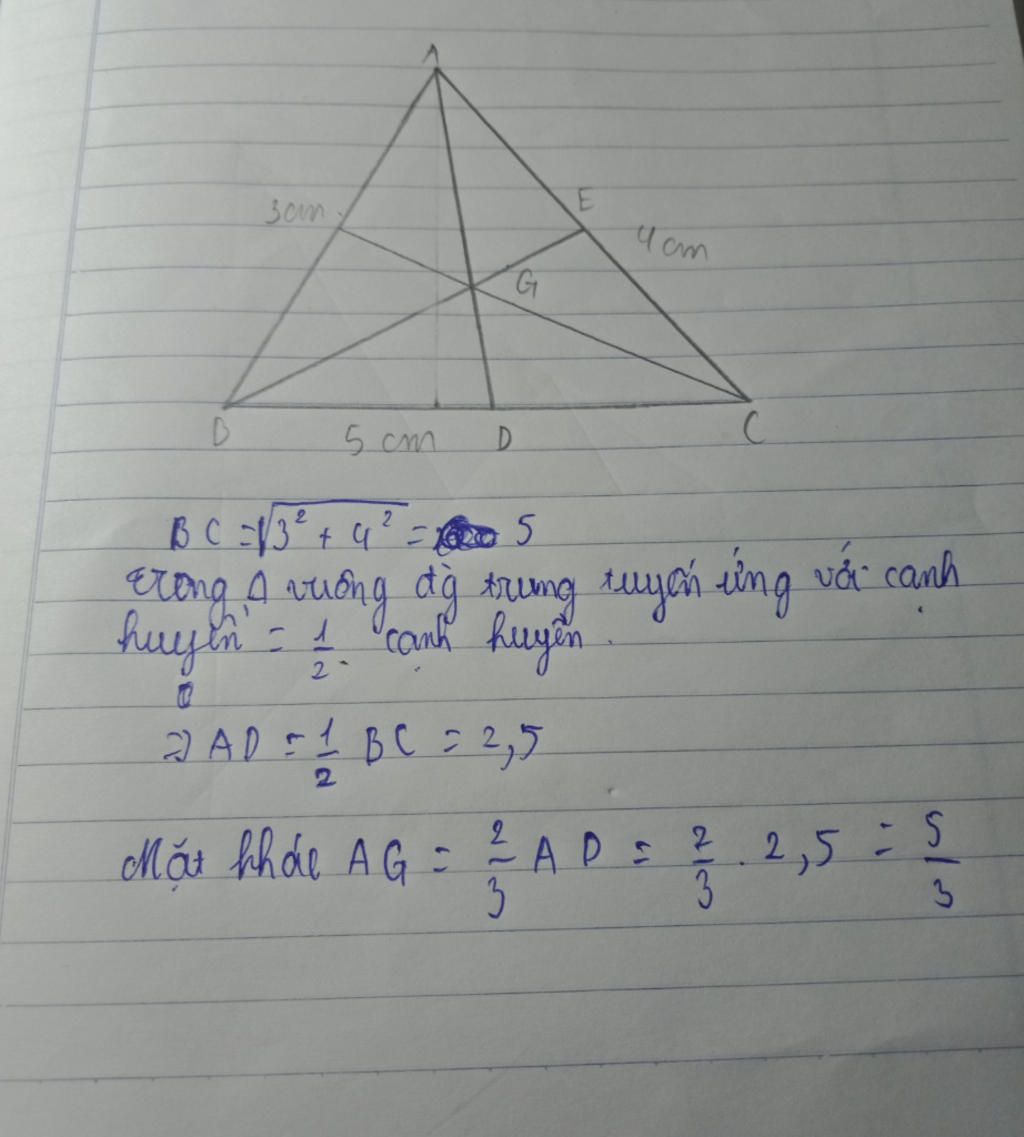 A
3cm
E
4cm
G
B
5 cm
D
C
BC = √3² + 4² = 5
trong Δ vuông đg trung tuyến ứng với cạnh
huyền = 1/2 cạnh huyền.
=> AD = 1/2 BC = 2,5
Mặt khác AG = 2/3 AD = 2/3 . 2,5 = 5/3